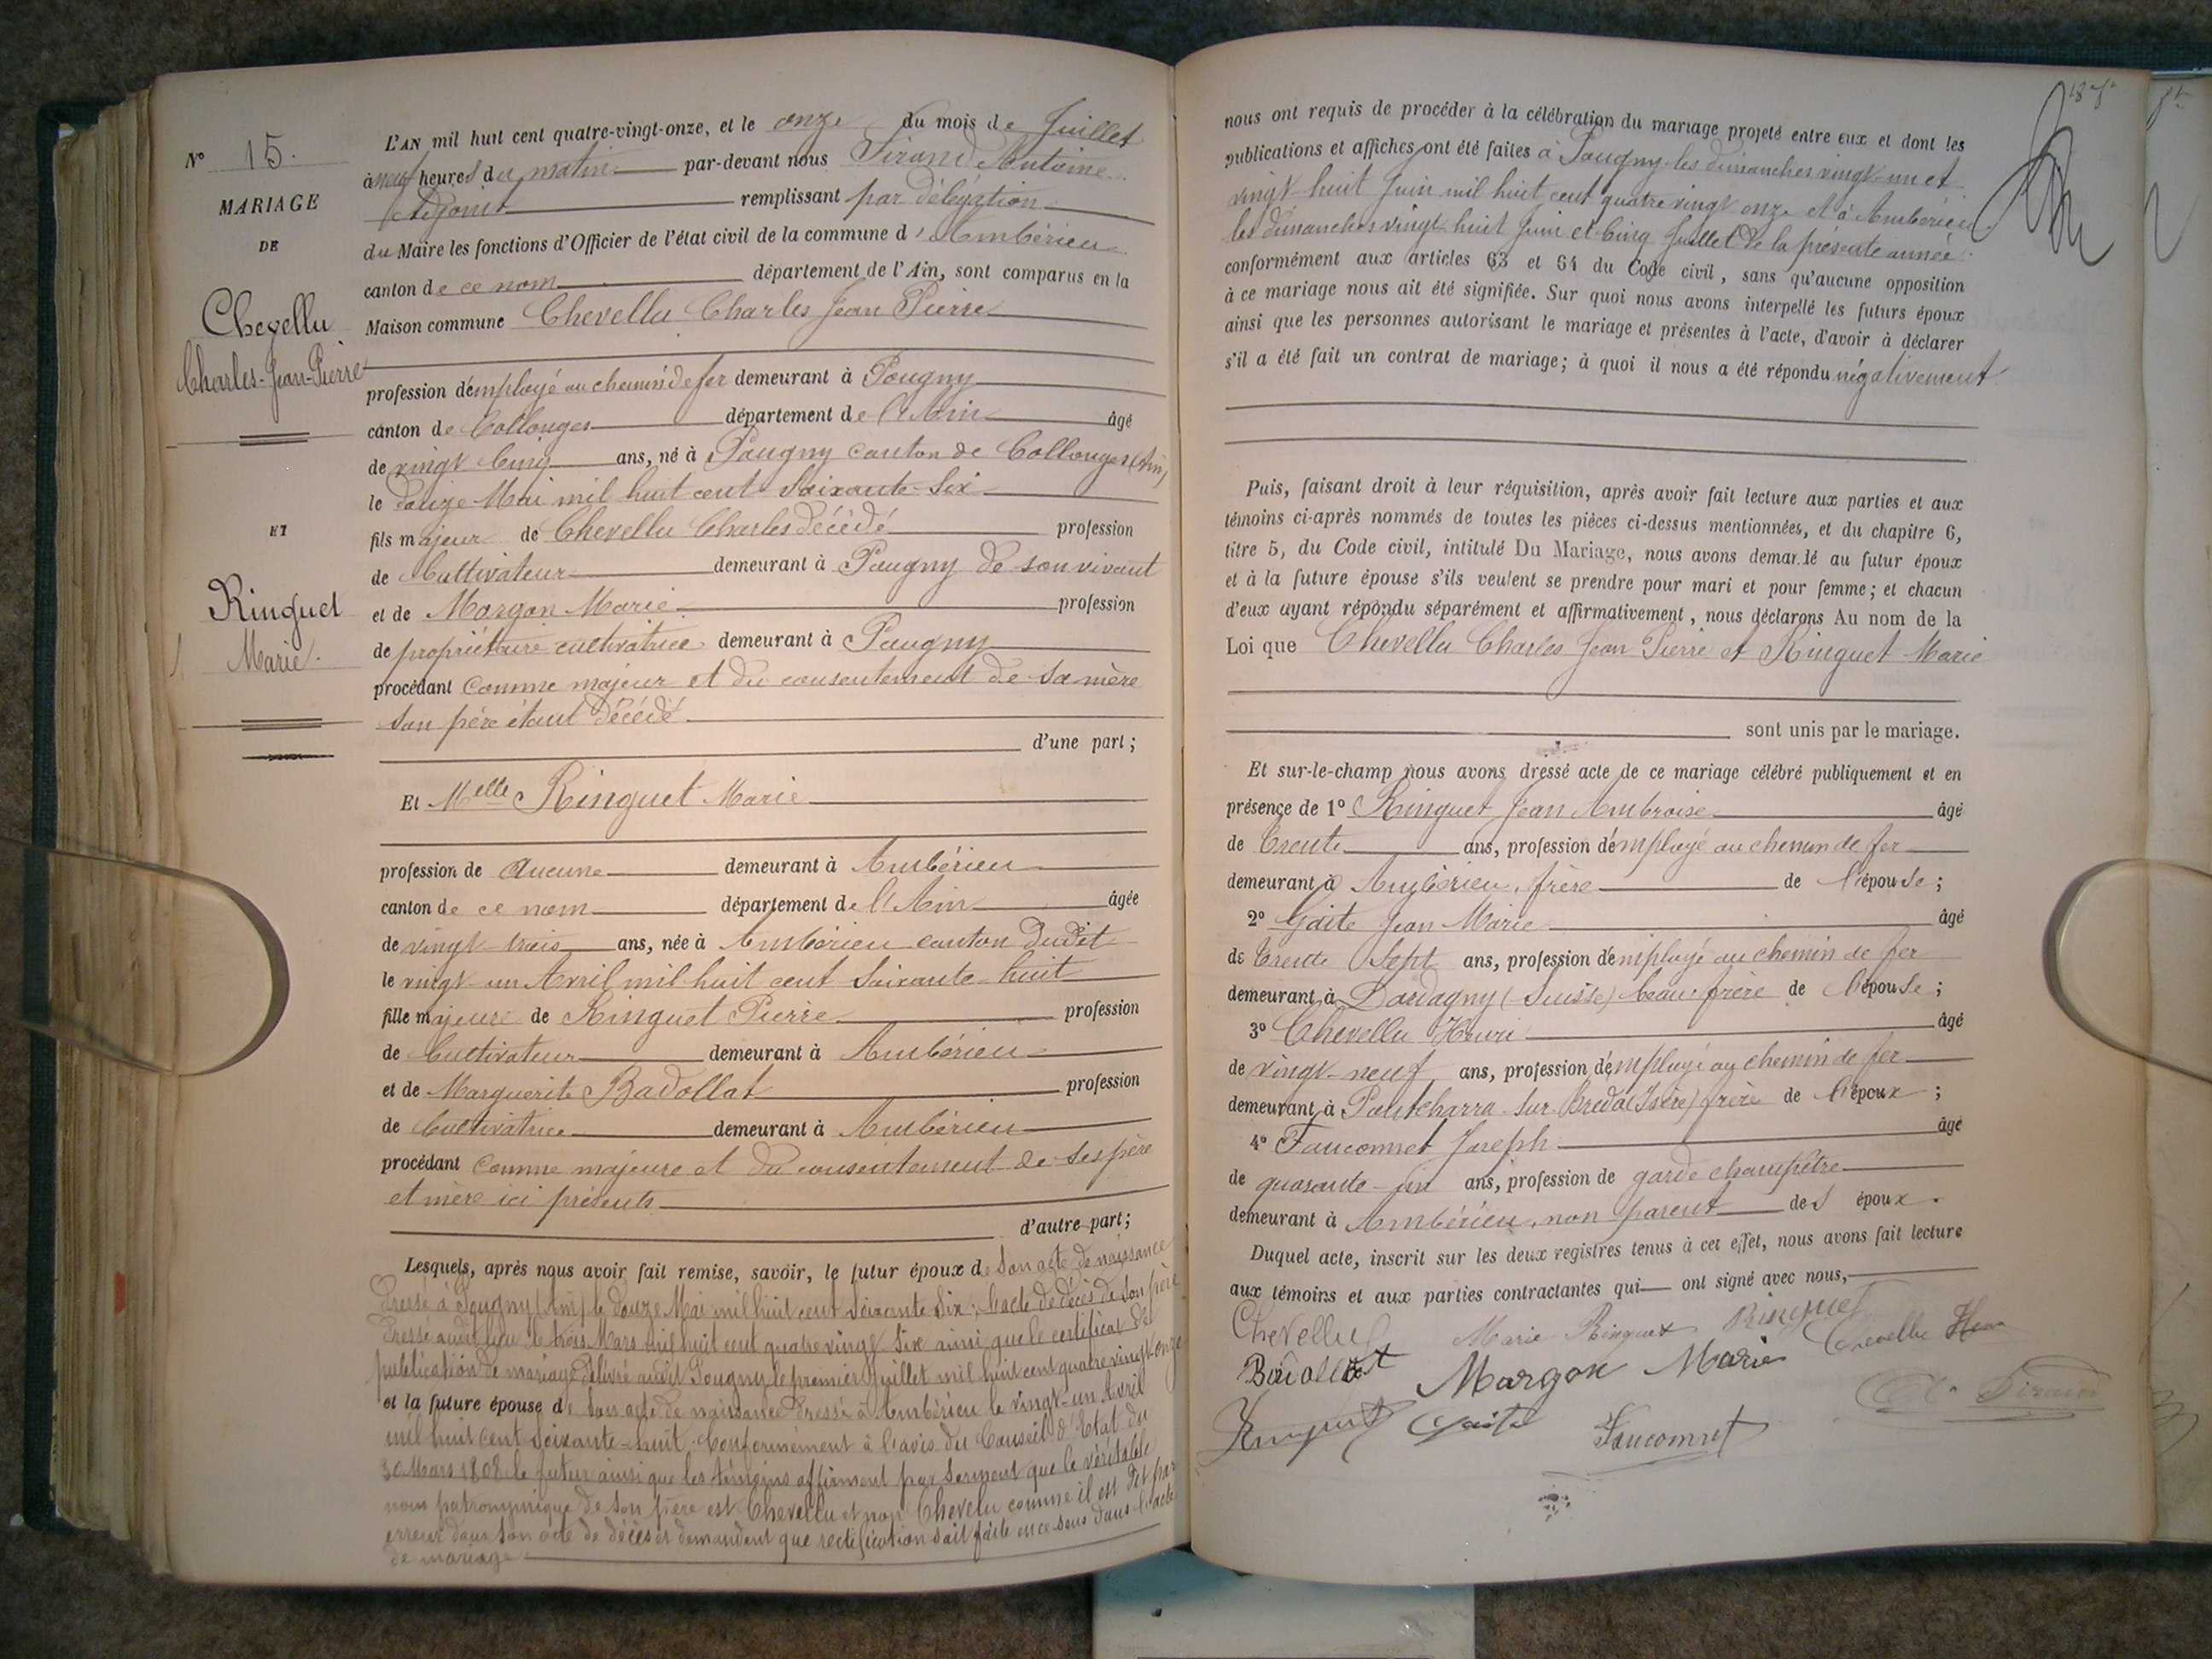 N° 15.
MARIAGE
DE
Chevellu
Charles-Jean-Pierre
ET
Ringuet
Marie.
L'AN mil huit cent quatre-vingt-onze, et le onze du mois de Juillet
à neuf heures du matin par-devant nous Sirand Antoine
Adjoint remplissant par délégation
du Maire les fonctions d'Officier de l'état civil de la commune d'Ambérieu
canton de ce nom département de l'Ain, sont comparus en la
Maison commune Chevellu Charles Jean Pierre
profession d'employé au chemin de fer demeurant à Pougny
canton de Collonges département de l'Ain âgé
de vingt cinq ans, né à Pougny canton de Collonges (Ain)
le douze Mai mil huit cent soixante-six
fils majeur de Chevellu Charles décédé profession
de Cultivateur demeurant à Pougny de son vivant
et de Margon Marie profession
de propriétaire cultivatrice demeurant à Pougny
procédant comme majeur et du consentement de sa mère
son père étant décédé
d'une part;
Et Melle Ringuet Marie
profession de aucune demeurant à Ambérieu
canton de ce nom département de l'Ain âgée
de vingt-trois ans, née à Ambérieu canton dudit
le vingt-un Avril mil huit cent soixante-huit
fille majeure de Ringuet Pierre profession
de Cultivateur demeurant à Ambérieu
et de Marguerite Badollat profession
de Cultivatrice demeurant à Ambérieu
procédant comme majeure et du consentement de ses père
et mère ici présents
d'autre part;
Lesquels, après nous avoir fait remise, savoir, le futur époux de son acte de naissance
dressé à Pougny (Ain) le douze Mai mil huit cent soixante six; l'acte de décès de son père
dressé audit lieu le trois Mars mil huit cent quatre vingt six ainsi que le certificat de
publication de mariage délivré audit Pougny le premier Juillet mil huit cent quatre vingt onze
et la future épouse de son acte de naissance dressé à Ambérieu le vingt-un Avril
mil huit cent soixante-huit. Conformément à l'avis du Conseil d'Etat du
30 Mars 1808 le futur ainsi que les témoins affirment par serment que le véritable
nom patronymique de son père est Chevellu et non Chevelu comme il est dit par
erreur dans son acte de décès et demandent que rectification soit faite en ce sens dans l'acte
de mariage
nous ont requis de procéder à la célébration du mariage projeté entre eux et dont les
publications et affiches ont été faites à Pougny les dimanches vingt-un et
vingt-huit Juin mil huit cent quatre vingt onze et à Ambérieu
les dimanches vingt-huit Juin et cinq Juillet de la présente année
conformément aux articles 63 et 64 du Code civil, sans qu'aucune opposition
à ce mariage nous ait été signifiée. Sur quoi nous avons interpellé les futurs époux
ainsi que les personnes autorisant le mariage et présentes à l'acte, d'avoir à déclarer
s'il a été fait un contrat de mariage; à quoi il nous a été répondu négativement
Puis, faisant droit à leur réquisition, après avoir fait lecture aux parties et aux
témoins ci-après nommés de toutes les pièces ci-dessus mentionnées, et du chapitre 6,
titre 5, du Code civil, intitulé Du Mariage, nous avons demandé au futur époux
et à la future épouse s'ils veulent se prendre pour mari et pour femme; et chacun
d'eux ayant répondu séparément et affirmativement, nous déclarons Au nom de la
Loi que Chevellu Charles Jean Pierre et Ringuet Marie
sont unis par le mariage.
Et sur-le-champ nous avons dressé acte de ce mariage célébré publiquement et en
présence de 1° Ringuet Jean Ambroise âgé
de trente ans, profession d'employé au chemin de fer
demeurant à Ambérieu, frère de l'épouse;
2° Gaite Jean Marie âgé
de trente sept ans, profession d'employé au chemin de fer
demeurant à Dardagny (Suisse) beau-frère de l'épouse;
3° Chevellu Henri âgé
de vingt-neuf ans, profession d'employé au chemin de fer
demeurant à Pontcharra-sur-Breda (Isère) frère de l'époux;
4° Fauconnet Joseph âgé
de quarante-un ans, profession de garde champêtre
demeurant à Ambérieu, non parent des époux.
Duquel acte, inscrit sur les deux registres tenus à cet effet, nous avons fait lecture
aux témoins et aux parties contractantes qui ont signé avec nous,
Chevellu Marie Ringuet Ringuet Chevellu
Badollat Margon Marie A. Sirand
Ringuet Gaite Fauconnet